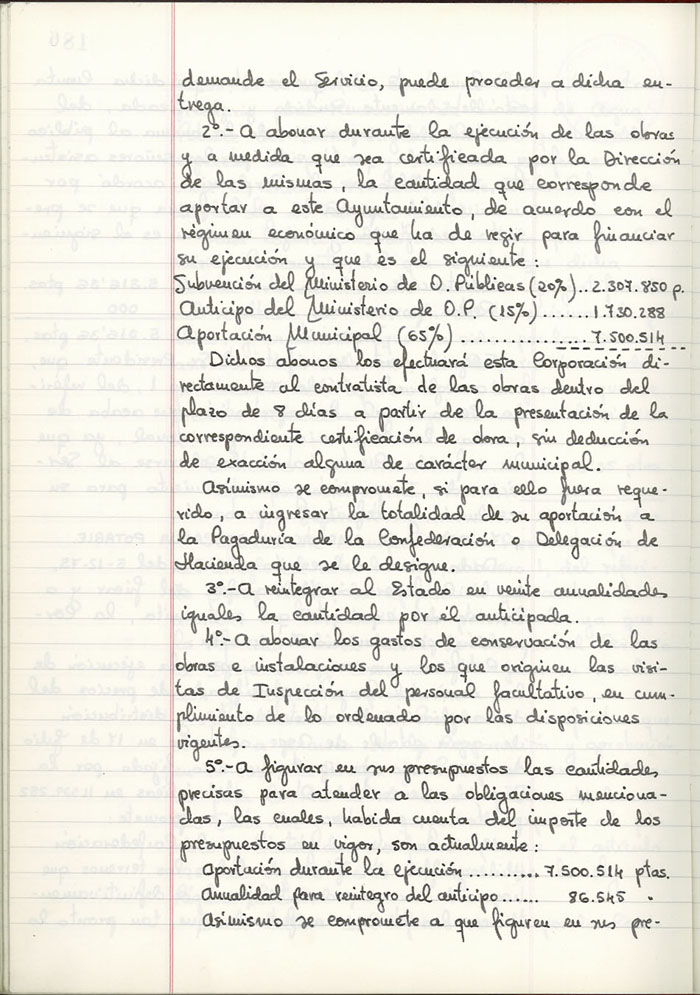 demande el Servicio, puede proceder a dicha en-
trega.
2º.- A abonar durante la ejecución de las obras
y a medida que sea certificada por la Dirección
de las mismas, la cantidad que corresponde
aportar a este Ayuntamiento, de acuerdo con el
régimen económico que ha de regir para financiar
su ejecución y que es el siguiente:
Subvención del Ministerio de O. Públicas (20%)..2.307.850 p.
Anticipo del Ministerio de O.P. (15%)......1.730.288
Aportación Municipal (65%)................7.500.514
Dichos abonos los efectuará esta Corporación di-
rectamente al contratista de las obras dentro del
plazo de 8 días a partir de la presentación de la
correspondiente certificación de obra, sin deducción
de exacción alguna de carácter municipal.
Asímismo se compromete, si para ello fuera reque-
rido, a ingresar la totalidad de su aportación a
la Pagaduría de la Confederación o Delegación de
Hacienda que se le designe.
3º.-A reintegrar al Estado en veinte anualidades
iguales la cantidad por él anticipada.
4º.-A abonar los gastos de conservación de las
obras e instalaciones y los que originen las visi-
tas de Inspección del personal facultativo, en cum-
plimiento de lo ordenado por las disposiciones
vigentes.
5º.-A figurar en sus presupuestos las cantidades
precisas para atender a las obligaciones menciona-
das, las cuales, habida cuenta del importe de los
presupuestos en vigor, son actualmente:
Aportación durante la ejecución..........7.500.514 ptas.
Anualidad para reintegro del anticipo......86.545 "
Asímismo se compromete a que figuren en sus pre-